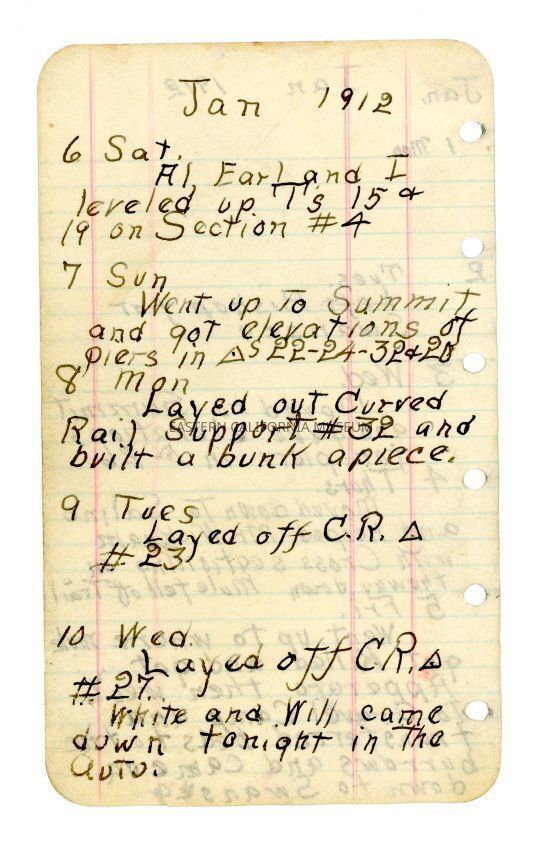 Jan 1912
6 Sat.
Al, Earl and I
leveled up T's 15 &
19 on Section #4
7 Sun
Went up To Summit
and got elevations of
piers in △s 22-24-32&20
8 Mon
Layed out Curved
Rail Support #32 and
EASTERN CALIFORNIA MUSEUM
built a bunk apiece.
9 Tues
Layed off C.R. △
#23
10 Wed.
Layed off C.R. △
#27.
White and Will came
down tonight in The
auto.